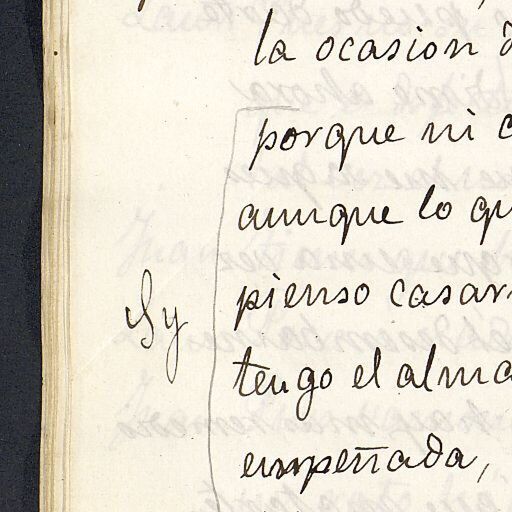 la ocasion
porque ni
aunque lo
pienso casar
tengo el alma
empeñada,